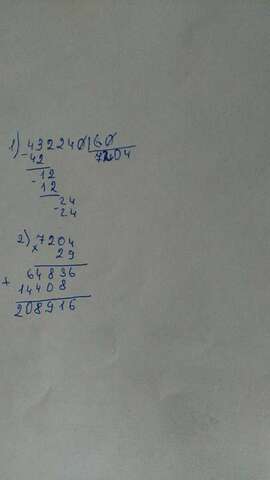 1) 432240|60
-42 7204
-12
12
24
-24
2) ×7204
29
64836
+
14408
208916